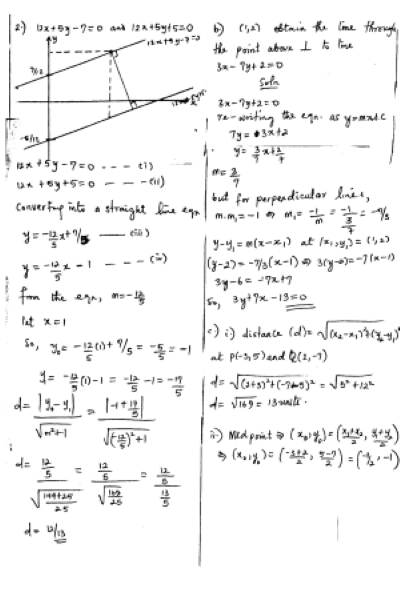 2) 12x + 5y - 7 = 0 and 12x + 5y + 5 = 0
y
12x + 5y - 7 = 0
7/12
-5/12
12x + 5y - 7 = 0 - - - (i)
12x + 5y + 5 = 0 - - - (ii)
Converting into a straight line eqn
y = -12/5 x + 7/5 —— (iii)
y = -12/5 x - 1 - - - (iv)
from the eqn, m = -12/5
let x = 1
So, y₀ = -12/5 (1) + 7/5 = -5/5 = -1
y = -12/5 (1) - 1 = -12/5 - 1 = -17/5
d = |y₀ - y₁| / √(m² + 1) = |-1 + 17/5| / √((-12/5)² + 1)
d = 12/5 / √((144 + 25)/25) = 12/5 / √(169/25) = 12/5 / 13/5
d = 12/13
b) (1,2) obtain the line through
the point above ⊥ to line
3x - 7y + 2 = 0
Soln
3x - 7y + 2 = 0
re-writing the eqn. as y = mx + c
7y = 3x + 2
y = 3/7 x + 2/7
m = 3/7
but for perpendicular lines,
m. m₁ = -1 ⇒ m₁ = -1/m = -1/(3/7) = -7/3
y - y₁ = m(x - x₁) at (x₁, y₁) = (1,2)
(y - 2) = -7/3 (x - 1) ⇒ 3(y - 2) = -7(x - 1)
3y - 6 = -7x + 7
So, 3y + 7x - 13 = 0
c) i) distance (d) = √((x₂ - x₁)² + (y₂ - y₁)²
at P(-3, 5) and Q(2, -7)
d = √((2 + 3)² + (-7 - 5)²) = √(5² + 12²)
d = √169 = 13 units.
ii) Med point ⇒ (x₀, y₀) = ((x₁ + x₂)/2, (y₁ + y₂)/2)
⇒ (x₀, y₀) = ((-3 + 2)/2, (5 - 7)/2) = (-1/2, -1)